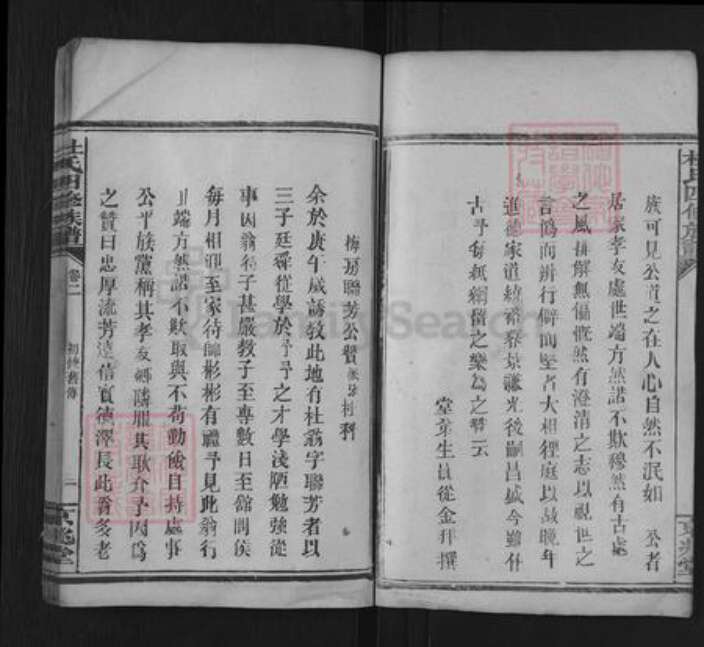 杜氏四修族譜
京兆堂
族可見公道之在人心自然不泯如 公者
居家孝友處世端方然諾不欺穆然有古處
之風排解無偏慨然有澄清之志以視世之
言僞而辨行僻而堅者大相徑庭以故晚年
進德家道
謙光後嗣昌盛今雖什
古予每
之樂為之贊云
堂業生員從金拜撰
梅房聯芳公贊
余於庚午歲設教此地有杜翁字聯芳者以
三子廷舜從學於予予之才學淺陋勉強從
事因翁待子甚嚴教子至專數日至館問候
每月相迎至家待師彬彬有禮予見此翁行
止端方然諾不欺取與不苟勤儉自持處事
公平族黨稱其孝友鄉隣服其耿介予因爲
之贊曰忠厚流芳達信實德澤長此翁多老
杜氏四修族譜
卷二
初修舊傳
二
京兆堂
FamilySearch